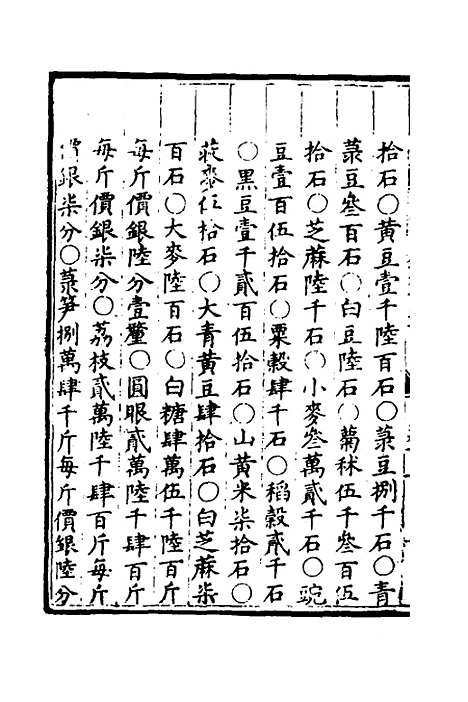 拾石○黃豆壹千陸百石○菉豆捌千石○青
菉豆叄百石○白豆陸石○䓶秫伍千叄百伍
拾石○芝蔴陸千石○小麥叄萬貳千石○豌
豆壹百伍拾石○粟穀肆千石○稻穀貳千石
○黑豆壹千貳百伍拾石○山黃米柒拾石○
莜麥伍拾石○大青黃豆肆拾石○白芝蔴柒
百石○大麥陸百石○白糖肆萬伍千陸百斤
每斤價銀陸分壹釐○圓眼貳萬陸千肆百斤
每斤價銀柒分○荔枝貳萬陸千肆百斤每斤
價銀柒分○菉笋捌萬肆千斤每斤價銀陸分